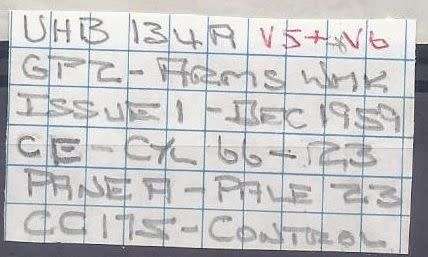 UHB 134A V5+V6
GPZ - ARMS WMK
ISSUE 1 - DEC 1959
CE - CYL 66 - 23
PANE A - PALE 23
CC175 - CONTROL